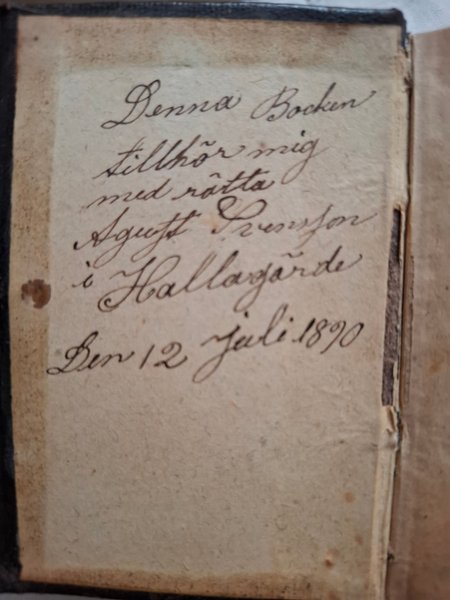 Denna Bocken
tillhör mig
med rätta
Agust Svensson
i Hallagärde
Den 12 juli 1890